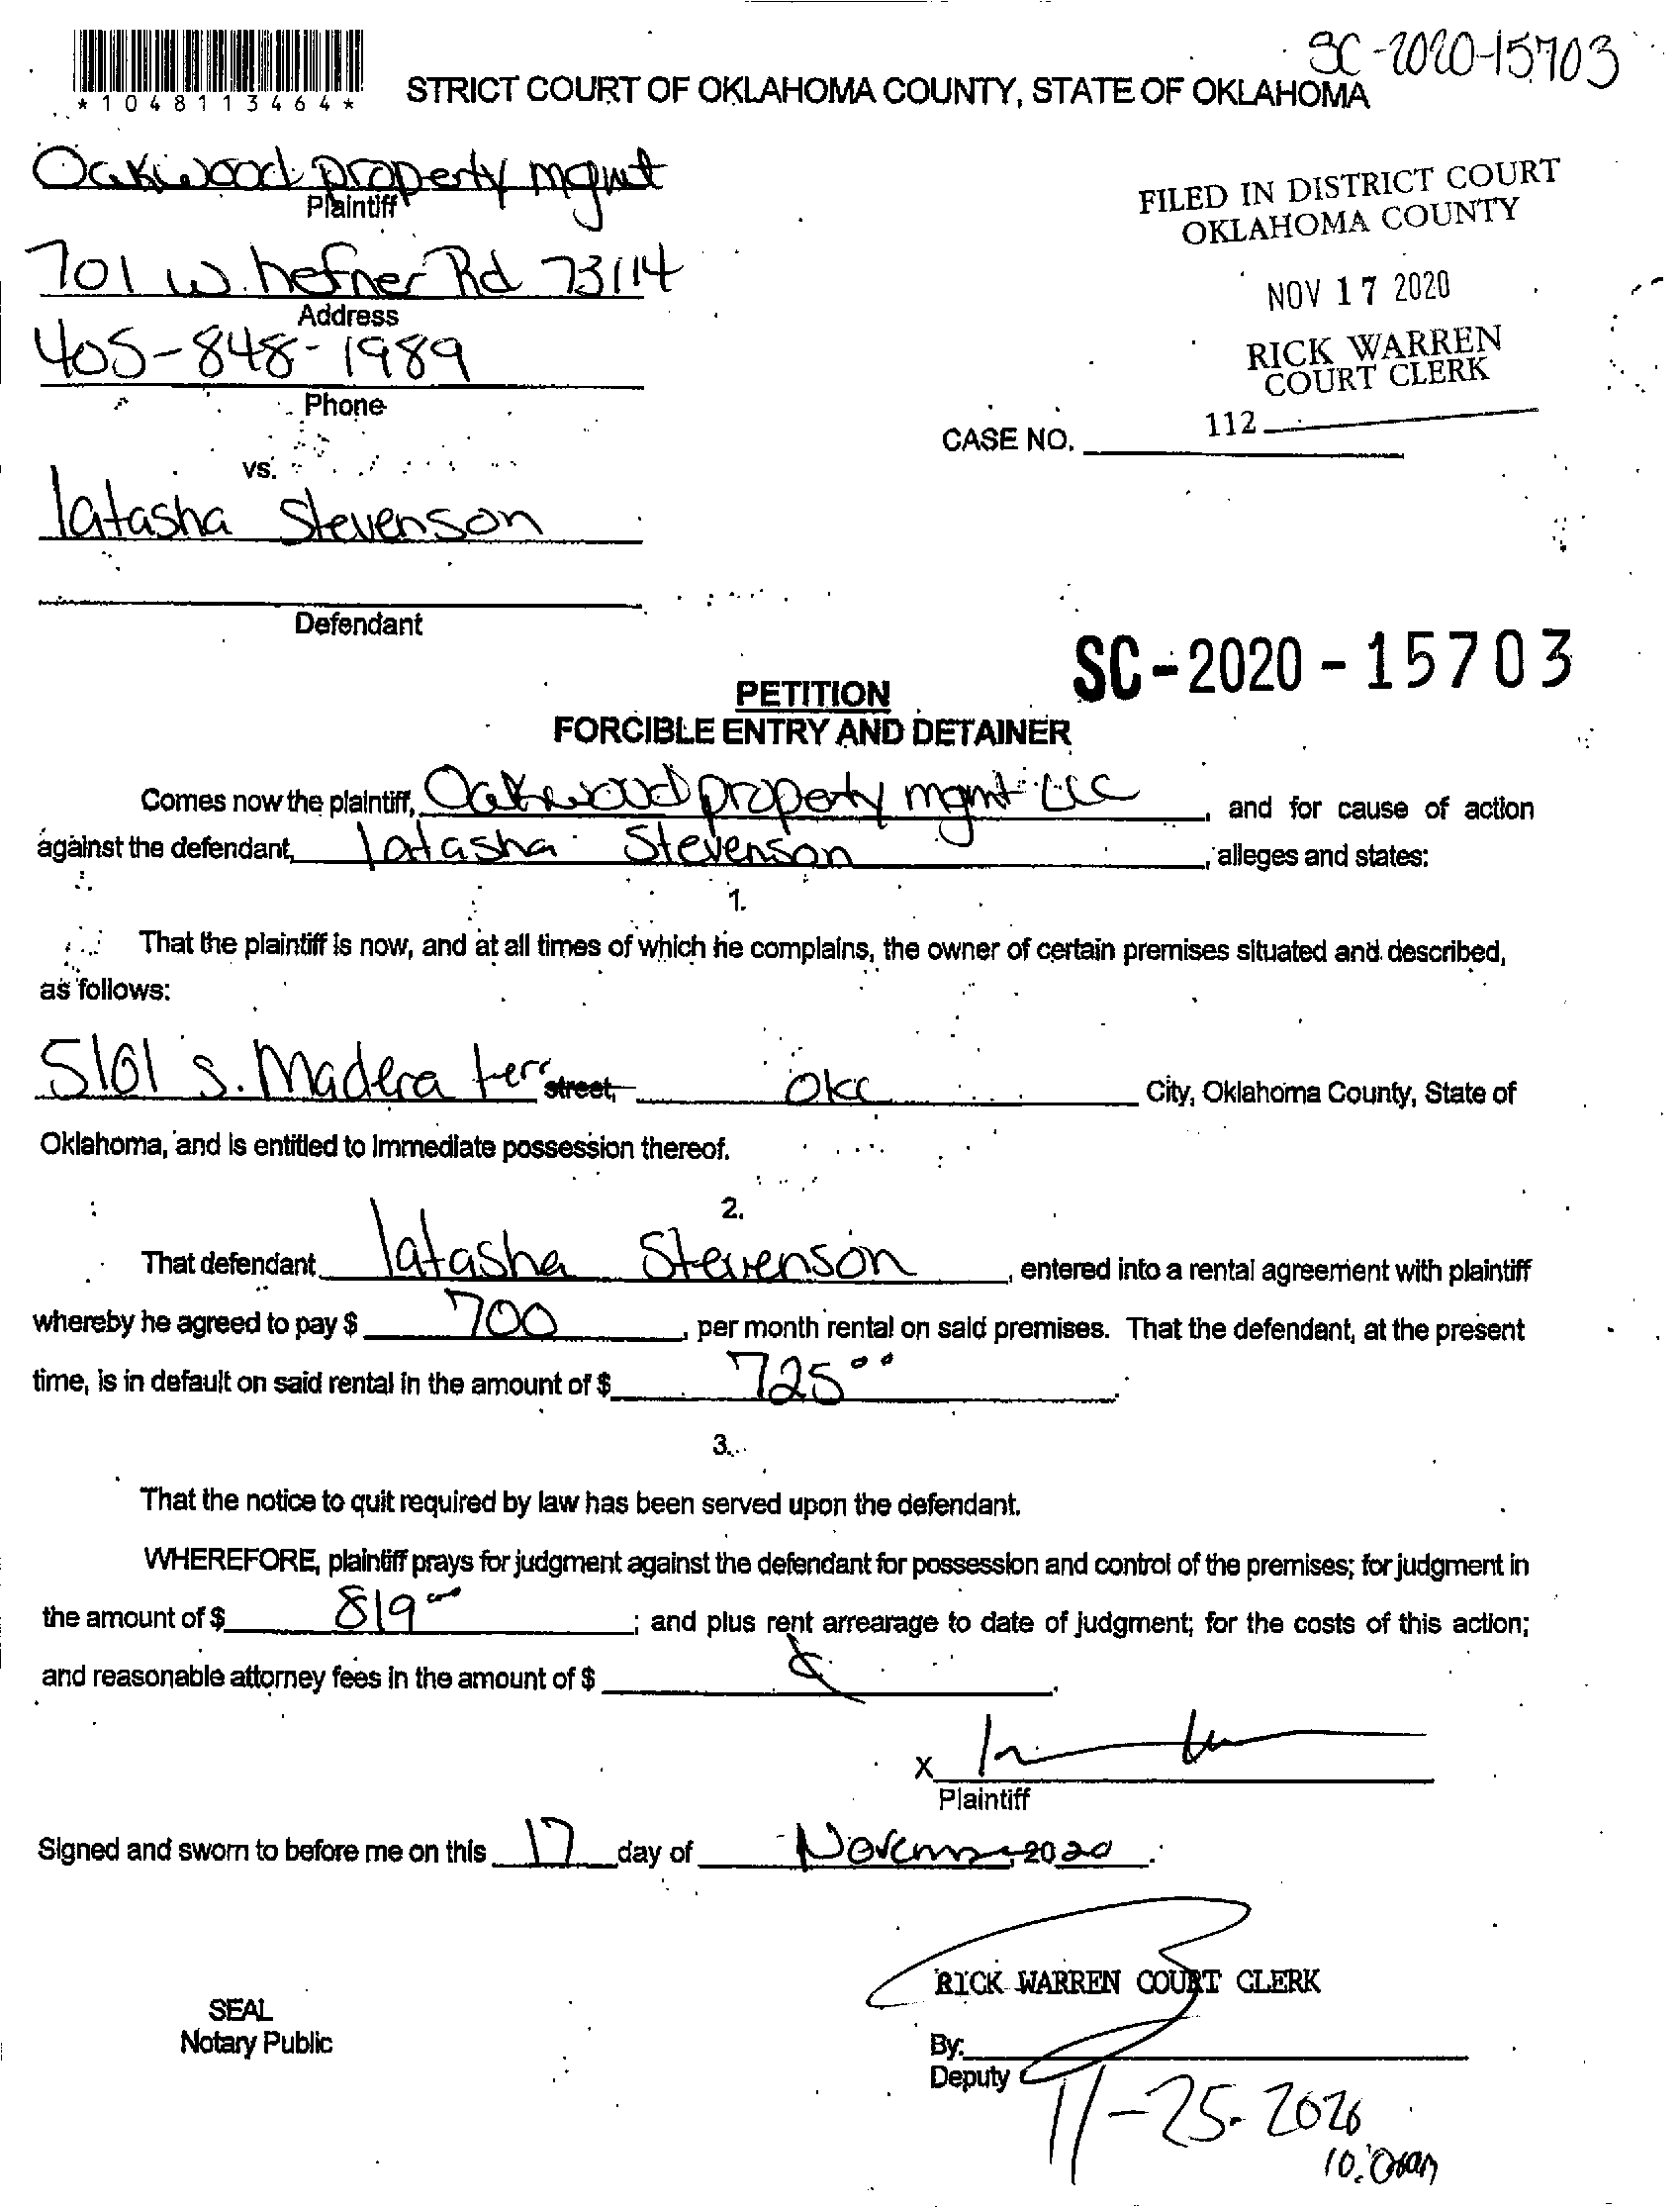 SC-2020-15703
*1048113464*
STRICT COURT OF OKLAHOMA COUNTY, STATE OF OKLAHOMA
Oakwood property mgmt
Plaintiff
FILED IN DISTRICT COURT
OKLAHOMA COUNTY
701 W. hefner Rd 73114
Address
NOV 17 2020
405-848-1989
Phone
RICK WARREN
COURT CLERK
112
CASE NO.
vs.
latasha Stevenson
Defendant
SC-2020-15703
PETITION
FORCIBLE ENTRY AND DETAINER
Comes now the plaintiff, Oakwood property mgmt LLC, and for cause of action
against the defendant, latasha Stevenson, alleges and states:
1.
That the plaintiff is now, and at all times of which he complains, the owner of certain premises situated and described,
as follows:
5101 s. Madera terr street, OKC City, Oklahoma County, State of
Oklahoma, and is entitled to immediate possession thereof.
2.
That defendant latasha Stevenson, entered into a rental agreement with plaintiff
whereby he agreed to pay $ 700, per month rental on said premises. That the defendant, at the present
time, is in default on said rental in the amount of $ 725⁰⁰.
3.
That the notice to quit required by law has been served upon the defendant.
WHEREFORE, plaintiff prays for judgment against the defendant for possession and control of the premises; for judgment in
the amount of $ 819⁰⁰; and plus rent arrearage to date of judgment; for the costs of this action;
and reasonable attorney fees in the amount of $
X
Plaintiff
Signed and sworn to before me on this 17 day of November, 2020.
RICK WARREN COURT CLERK
SEAL
Notary Public
By:
Deputy
11-25-2020
10:00am